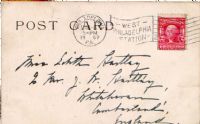 POST CARD
WEST
PHILADELPHIA
STATION
PA.
Miss Edith Hartley
c/o Mr. J. W. Hartley,
Whitehaven
Cumberland
England